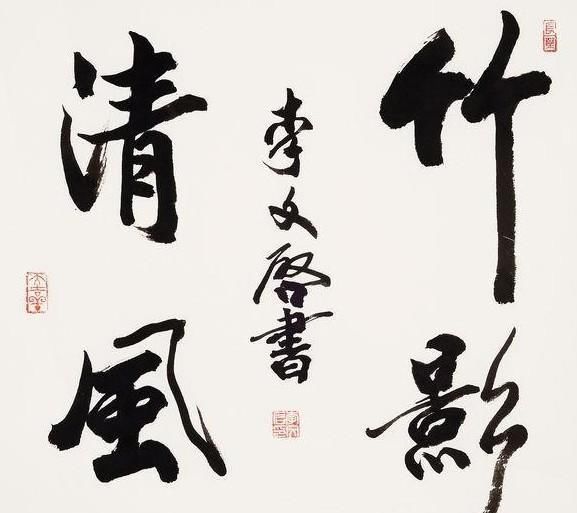 竹影
李文啓書
清風